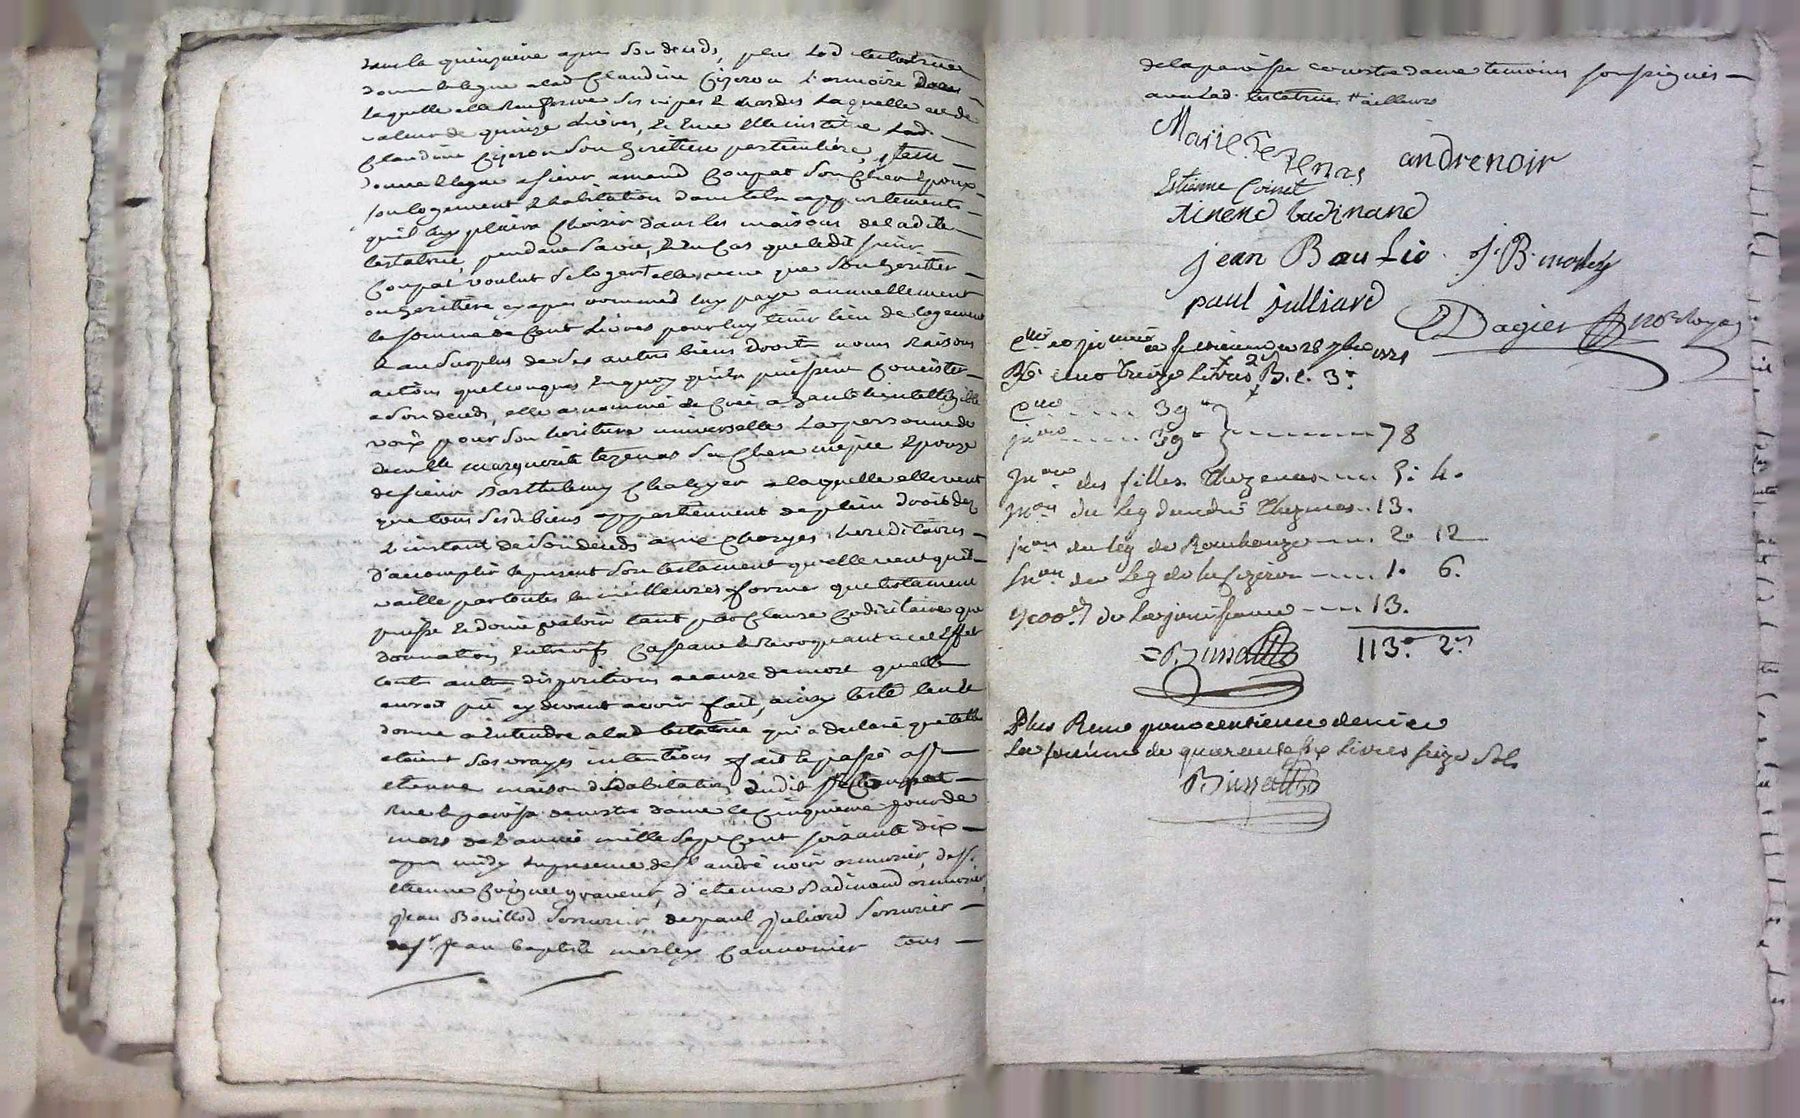 dans la quinzaine apres son deceds, plus lad testatrice
donne & legue a lad Claudine Cizeron l'armoire dans
laquelle elle renferme ses nipes & hardes laquelle est de
valeur de quinze livres, & en ce elle institue lad.
Claudine Cizeron son heritiere particuliere, item
donne & legue a sieur amand Coupat son cher epoux
son logement & habitation dans tels appartements
qu'il luy plaira choisir dans les maisons de ladite
testatrice pendant sa vie, & en cas que ledit sieur
Coupat voulut deloger elle veut que son heritier
ou heritiere cy apres nommé luy paye annuellement
la somme de Cent livres pour luy tenir lieu de logement
& au surplus de ses autres biens droits noms raisons
actions quelconques en quoy qu'ils puissent consister
a son deceds, elle a nommé de Crée a haute & intelligible
voix pour son heritiere universelle la personne de
demlle marguerite tezenas sa chere niepce epouze
de sieur Barthelemy Chaleyer a laquelle elle veut
que tous sesd biens appartiennent de plein droit dez
l'instant de son deceds a me charges hereditaires
d'accomplir le present son testament qu'elle veut qu'il
vaille par toutes les meilleures formes que testament
puisse & doive valoir tant par clause codicilaire que
donnation entrevifs Cassant & revoquant a cet effet
toutes autres dispositions a cause de mort quelle
auroit pû cy devant avoir fait, ainsy testé leu &
donné a entendre a lad testatrice qui a declaré quelles
etoient ses vrayes intentions fait & passé a st
etienne maison d'habitation dudit sr Coupat
rue & paroisse de nostre dame le Cinquieme jour de
mars de l'année mille sept Cent soixante dix
apres midy en presence de sr andré noir armurier, de sr
etienne Coignet graveur, d'etienne Badinand armurier
jean Bouillod serrurier, de paul juliard serrurier
de sr jean baptiste merley Cannonier tous
de la paroisse de nostre dame temoins soussignés
avec lad. testatrice
Marie Tezenas andrenoir
Estienne Coinet
Etienne badinand
jean Baulio. J. B. merley
paul julliard
Dagier
reçu treize livres 2s
39
39 78
des filles Thezenas 5. 4.
du leg dandre Thezenas 13.
du leg de 2 12
du leg de la Cizeron 1. 6.
de la jouissance 13.
113. 2.
Bussat
Plus Reçu pour centieme denier
La somme de quarente six livres seize sols
Bussat